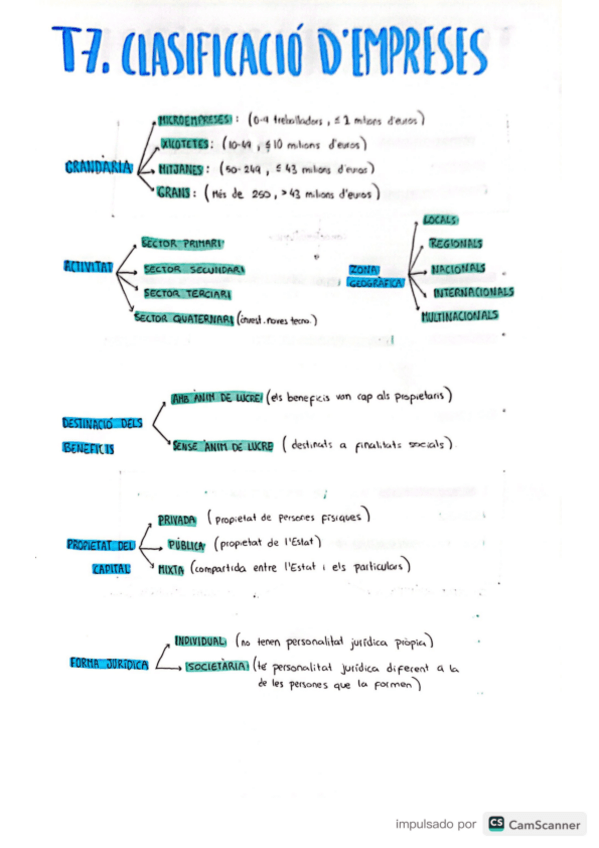 T7. CLASIFICACIÓ D'EMPRESES
GRANDÀRIA
MICROEMPRESES: (0-9 treballadors, ≤ 2 milions d'euros)
XICOTETES: (10-49, ≤ 10 milions d'euros)
MITJANES: (50-249, ≤ 43 milions d'euros)
GRANS: (Més de 250, >43 milions d'euros)
ACTIVITAT
SECTOR PRIMARI
SECTOR SECUNDARI
SECTOR TERCIARI
SECTOR QUATERNARI (invest. noves tecno.)
ZONA
GEOGRÀFICA
LOCALS
REGIONALS
NACIONALS
INTERNACIONALS
MULTINACIONALS
DESTINACIÓ DELS
BENEFICIS
AMB ÀNIM DE LUCRE (els beneficis van cap als propietaris)
SENSE ÀNIM DE LUCRE (destinats a finalitats socials)
PROPIETAT DEL
CAPITAL
PRIVADA (propietat de persones físiques)
PÚBLICA (propietat de l'Estat)
MIXTA (compartida entre l'Estat i els particulars)
FORMA JURÍDICA
INDIVIDUAL (no tenen personalitat jurídica pròpia)
SOCIETÀRIA (té personalitat jurídica diferent a la
de les persones que la formen)
impulsado por CS CamScanner